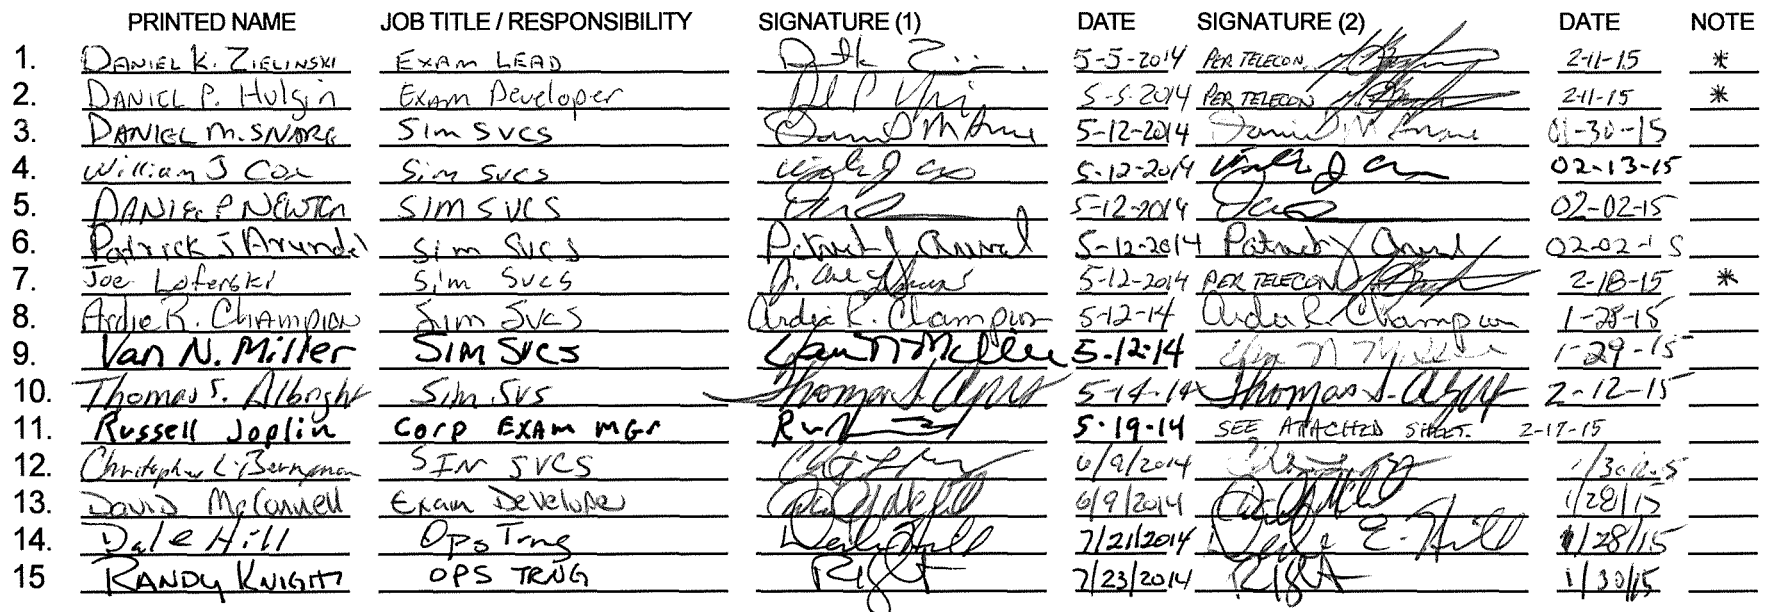 PRINTED NAME JOB TITLE / RESPONSIBILITY SIGNATURE (1) DATE SIGNATURE (2) DATE NOTE
1. DANIEL K. ZIELINSKI EXAM LEAD 5-5-2014 PER TELECON. 2-11-15 *
2. DANIEL P. Hulgin Exam Developer 5-5-2014 PER TELECON 2-11-15 *
3. DANIEL M. SNARE Sim SVCS 5-12-2014 01-30-15
4. William J Cox Sim SVCS 5-12-2014 02-13-15
5. DANIEL P NEWTON SIM SVCS 5-12-2014 02-02-15
6. Patrick J Arundel Sim SVCS Patrick J Arundel 5-12-2014 Patrick J 02-02-15
7. Joe Loferski Sim SVCS 5-12-2014 PER TELECON 2-18-15 *
8. Ardie R. CHAMPION Sim SVCS Ardie R. Champion 5-12-14 Ardie R. Champion 1-28-15
9. Van N. Miller SIM SVCS Van N Miller 5-12-14 Van N Miller 1-29-15
10. Thomas S. Albright Sim SVS Thomas S. 5-14-14 Thomas S. 2-12-15
11. Russell Joplin Corp EXAM MGr 5-19-14 SEE ATTACHED SHEET. 2-17-15
12. Christopher L. SIM SVCS 6/9/2014
13. DAVID McConnell Exam Developer 6/9/2014 1/28/15
14. Dale Hill Ops Trng Dale Hill 7/21/2014 Dale E. Hill 1/28/15
15 RANDY KNIGHT OPS TRNG 7/23/2014 1/30/15